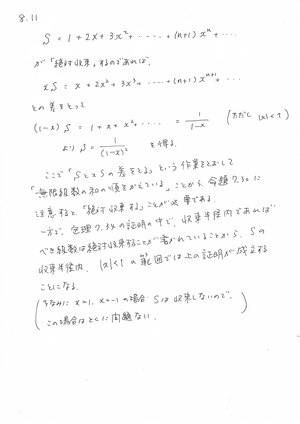 8.11
S = 1 + 2x + 3x² + ‥‥‥ + (n+1) xⁿ + ‥‥
が「絶対収束」するのであれば、
xS = x + 2x² + 3x³ + ‥‥‥ + (n+1) xⁿ⁺¹ + ‥‥
との差をとって
(1-x) S = 1 + x + x² + ‥‥‥ = 1/(1-x) (ただし |x| < 1)
より S = 1/(1-x)² を得る。
ここで「SとxSの差をとる」という作業をとおして
「無限級数の和の順をかえている」ことから、命題7.30に
注意すると、「絶対収束すること」が必要である。
一方で、定理7.34の証明の中で、収束半径内であれば
べき級数は絶対収束することが書かれていることから、Sの
収束半径内、|x|<1 の範囲では上の証明が成立する
ことになる。
(ちなみに x=1, x=-1 の場合 Sは収束しないので、
この場合はとくに問題ない。)